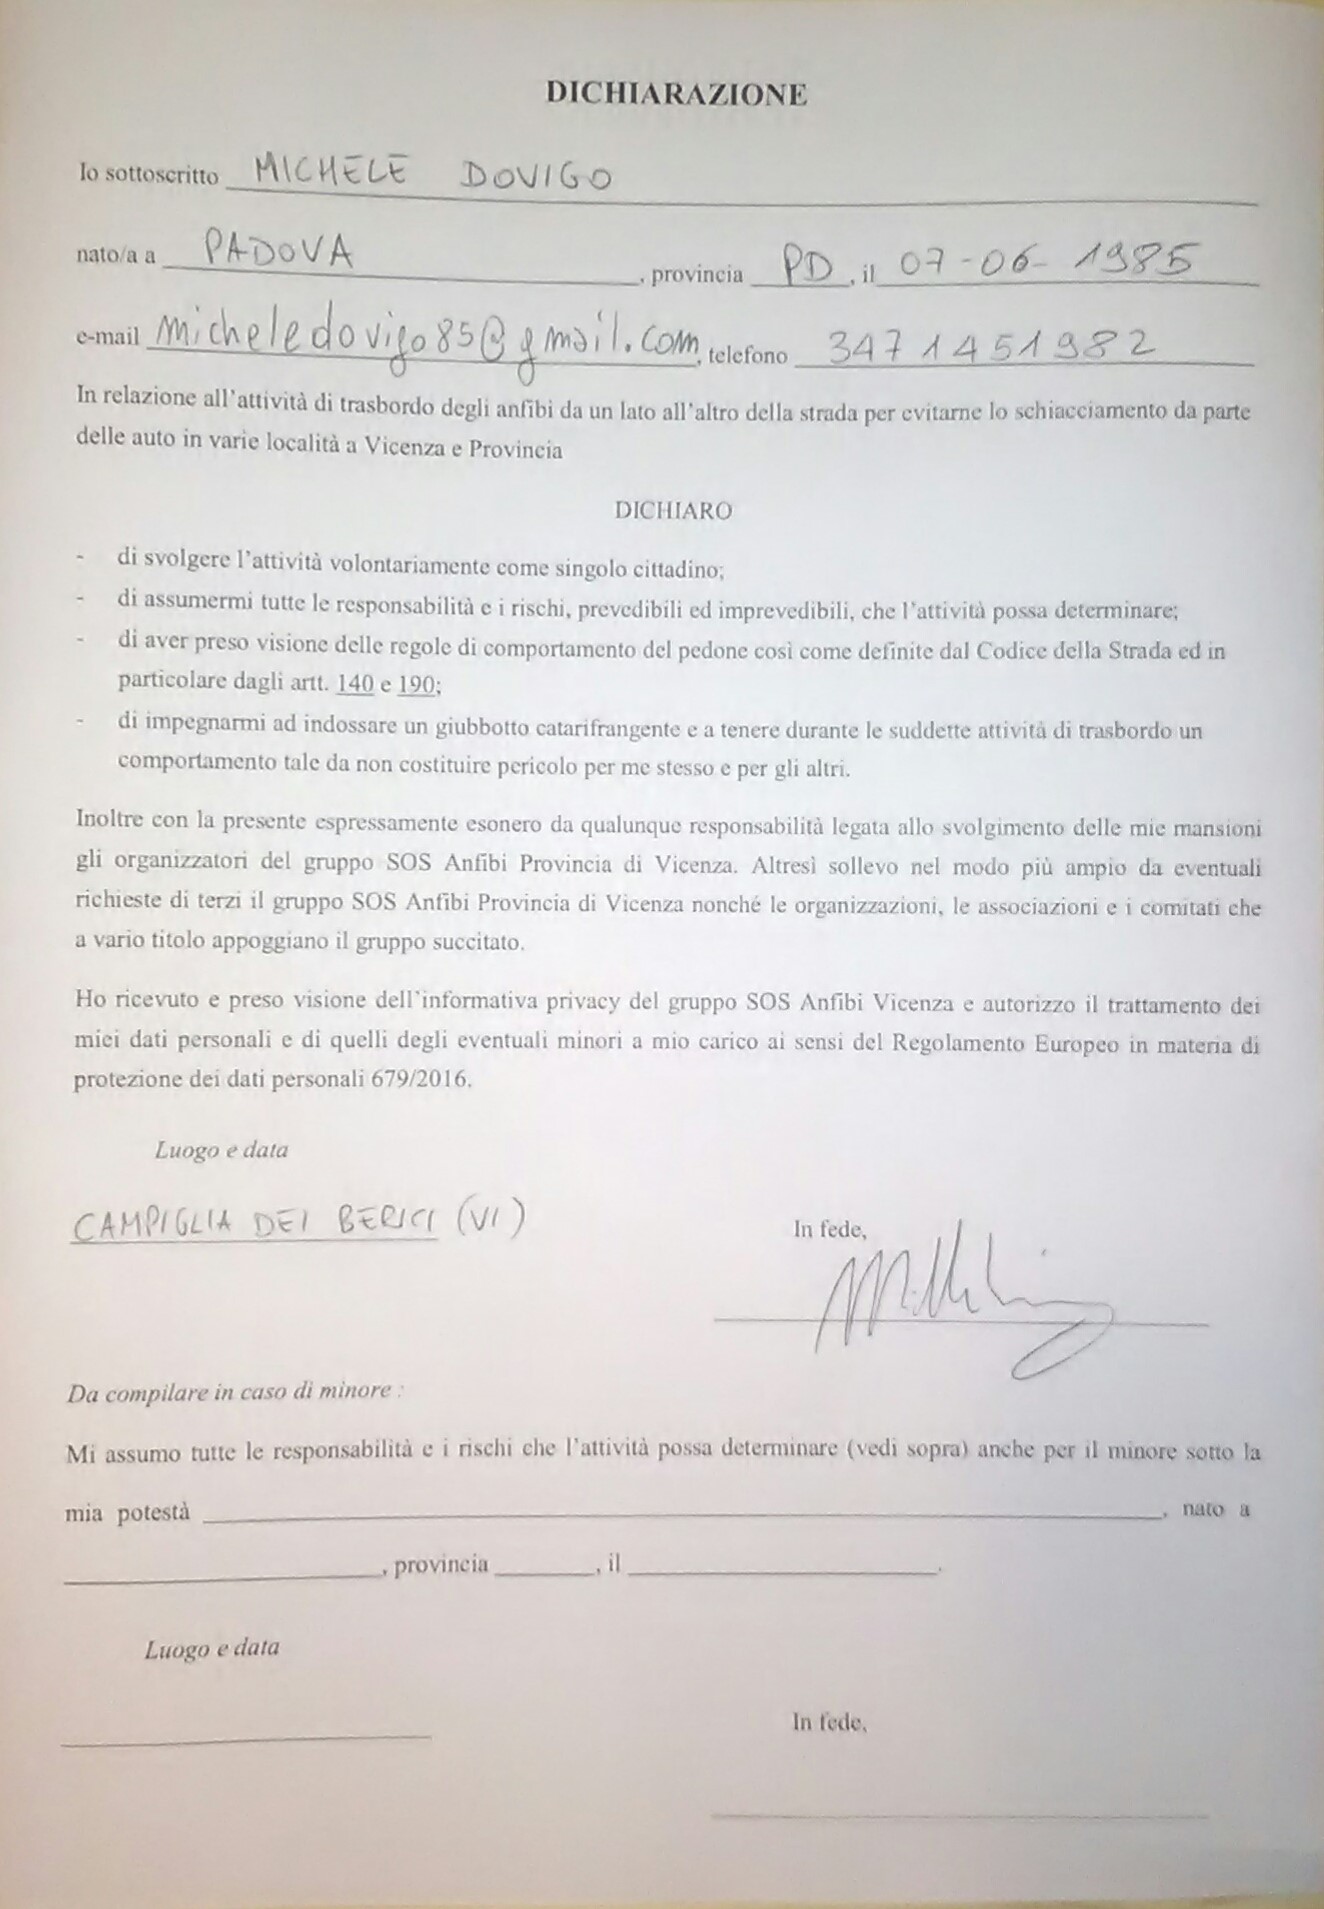 DICHIARAZIONE
Io sottoscritto MICHELE DOVIGO
nato/a a PADOVA, provincia PD, il 07-06-1985
e-mail micheledovigo85@gmail.com, telefono 3471451982
In relazione all'attività di trasbordo degli anfibi da un lato all'altro della strada per evitarne lo schiacciamento da parte
delle auto in varie località a Vicenza e Provincia
DICHIARO
- di svolgere l'attività volontariamente come singolo cittadino;
- di assumermi tutte le responsabilità e i rischi, prevedibili ed imprevedibili, che l'attività possa determinare;
- di aver preso visione delle regole di comportamento del pedone così come definite dal Codice della Strada ed in
particolare dagli artt. 140 e 190;
- di impegnarmi ad indossare un giubbotto catarifrangente e a tenere durante le suddette attività di trasbordo un
comportamento tale da non costituire pericolo per me stesso e per gli altri.
Inoltre con la presente espressamente esonero da qualunque responsabilità legata allo svolgimento delle mie mansioni
gli organizzatori del gruppo SOS Anfibi Provincia di Vicenza. Altresì sollevo nel modo più ampio da eventuali
richieste di terzi il gruppo SOS Anfibi Provincia di Vicenza nonché le organizzazioni, le associazioni e i comitati che
a vario titolo appoggiano il gruppo succitato.
Ho ricevuto e preso visione dell'informativa privacy del gruppo SOS Anfibi Vicenza e autorizzo il trattamento dei
miei dati personali e di quelli degli eventuali minori a mio carico ai sensi del Regolamento Europeo in materia di
protezione dei dati personali 679/2016.
Luogo e data
CAMPIGLIA DEI BERICI (VI)
In fede,
Da compilare in caso di minore :
Mi assumo tutte le responsabilità e i rischi che l'attività possa determinare (vedi sopra) anche per il minore sotto la
mia potestà , nato a
, provincia , il .
Luogo e data
In fede,